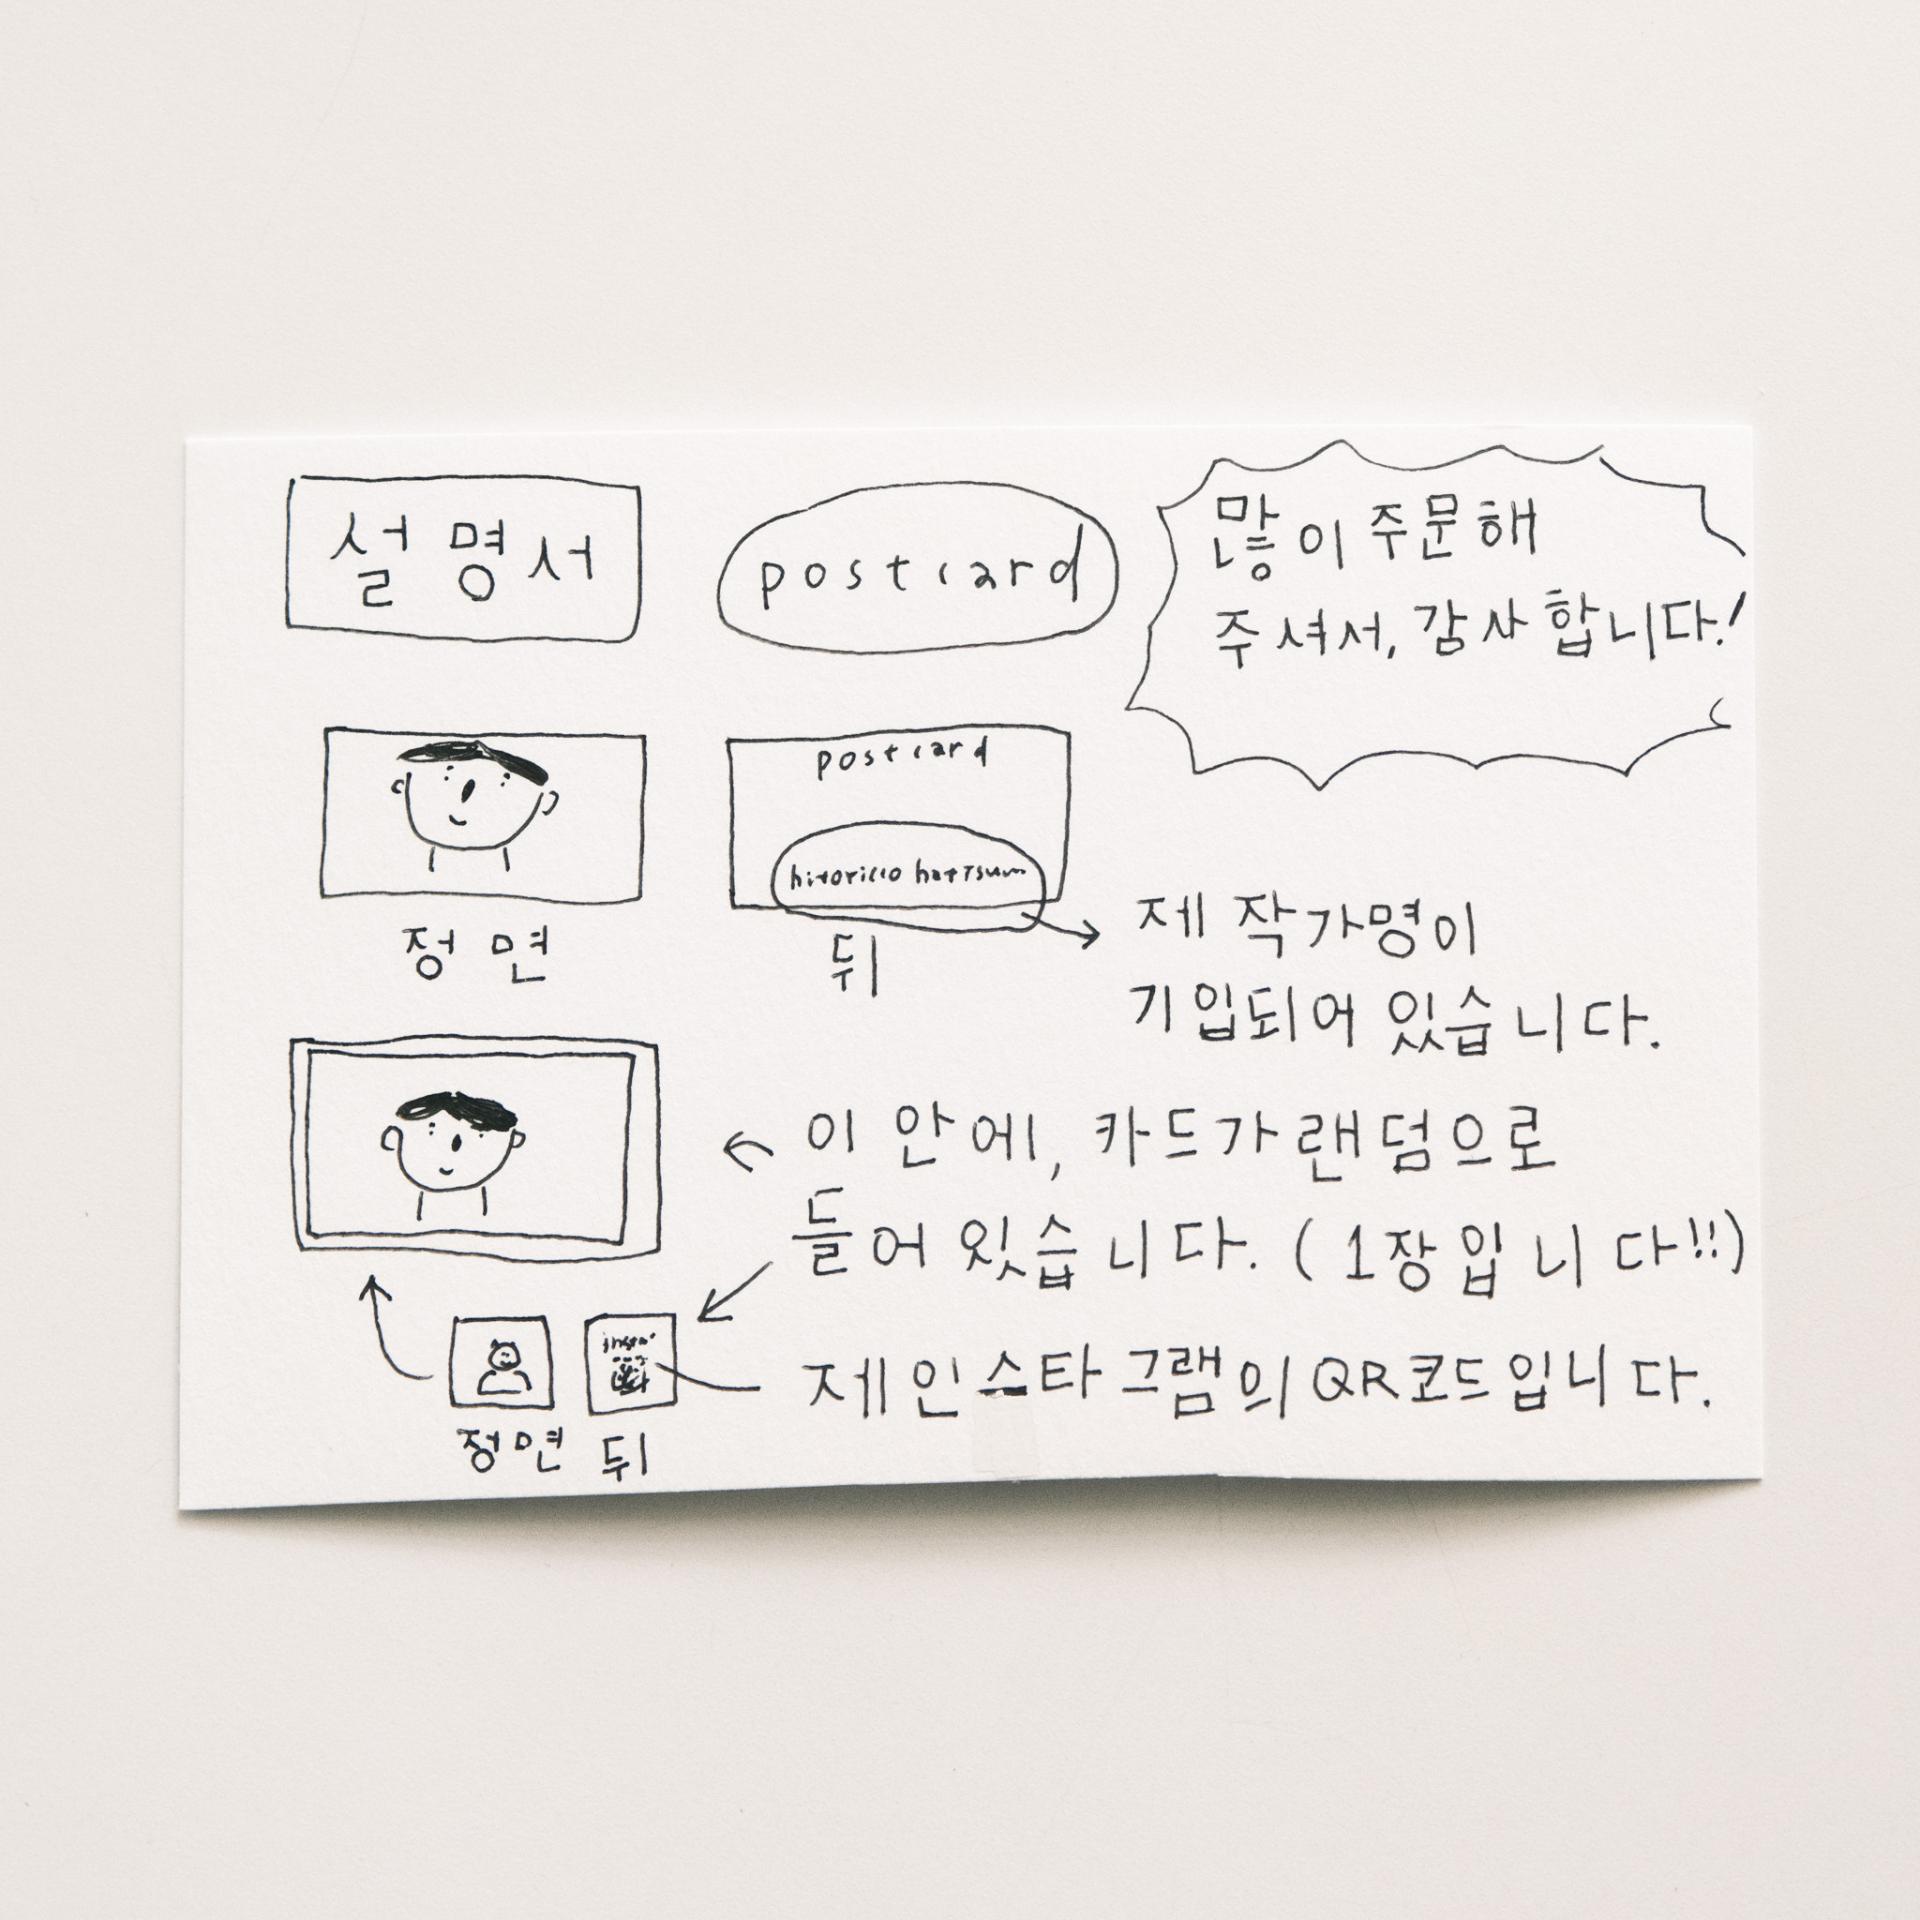 설명서
postcard
많이 주문해
주셔서, 감사합니다!
postcard
정면
뒤
제 작가명이
기입되어 있습니다.
이 안에, 카드가 랜덤으로
들어 있습니다. (1장입니다!!)
제 인스타그램의 QR코드입니다.
정면 뒤